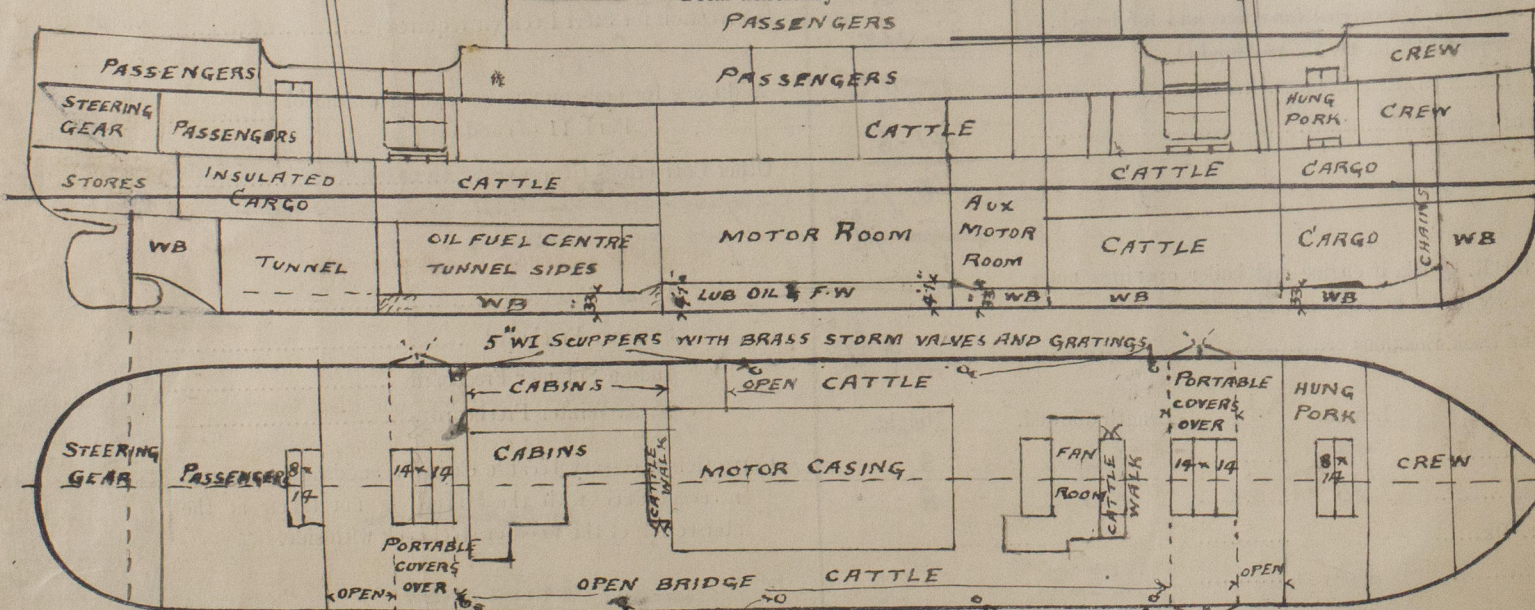 PASSENGERS
PASSENGERS
PASSENGERS
CREW
STEERING
GEAR
PASSENGERS
CATTLE
HUNG
PORK
CREW
STORES
INSULATED
CARGO
CATTLE
CATTLE
CARGO
CHAINS
WB
TUNNEL
OIL FUEL CENTRE
TUNNEL SIDES
MOTOR ROOM
AUX
MOTOR
ROOM
CATTLE
CARGO
WB
WB
33
4'1"
LUB OIL & F.W
4'1"
33
WB
WB
33
WB
5" WI SCUPPERS WITH BRASS STORM VALVES AND GRATINGS
CABINS
OPEN CATTLE
PORTABLE
COVERS
OVER
HUNG
PORK
STEERING
GEAR
PASSENGERS
8 x
14
14 x 14
CABINS
CATTLE
WALK
MOTOR CASING
FAN
ROOM
CATTLE
WALK
14 x 14
8 x
14
CREW
PORTABLE
COVERS
OVER
OPEN
OPEN BRIDGE CATTLE
OPEN